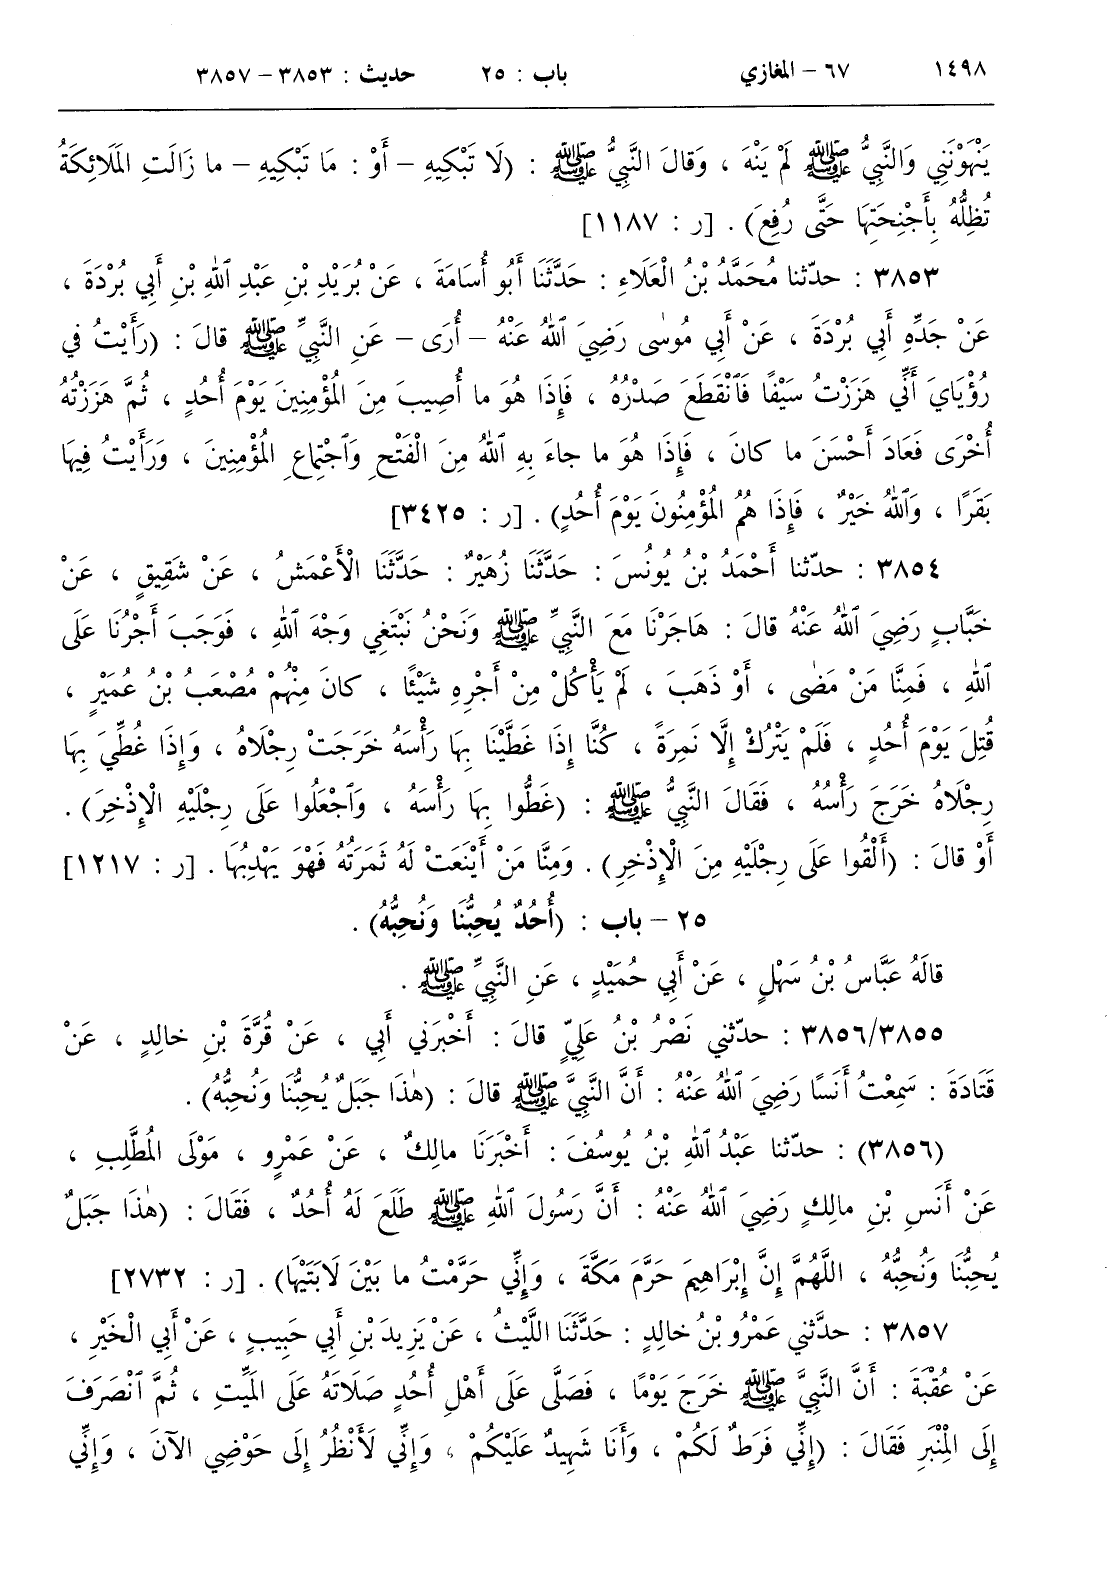 ١٤٩٨ ٦٧ – المغازي باب : ٢٥ حديث : ٣٨٥٣ – ٣٨٥٧
يَنْهَوْنَنِي وَالنَّبِيُّ ﷺ لَمْ يَنْهَ ، وَقالَ النَّبِيُّ ﷺ : (لَا تَبْكِيهِ – أَوْ : مَا تَبْكِيهِ – ما زَالَتِ المَلَائِكَةُ
تُظِلُّهُ بِأَجْنِحَتِهَا حَتَّى رُفِعَ) . [ر : ١١٨٧]
٣٨٥٣ : حدّثنا مُحَمَّدُ بْنُ الْعَلَاءِ : حَدَّثَنَا أَبُو أُسَامَةَ ، عَنْ بُرَيْدِ بْنِ عَبْدِ ٱللهِ بْنِ أَبِي بُرْدَةَ ،
عَنْ جَدِّهِ أَبِي بُرْدَةَ ، عَنْ أَبِي مُوسٰى رَضِيَ ٱللهُ عَنْهُ – أُرَى – عَنِ النَّبِيِّ ﷺ قالَ : (رَأَيْتُ في
رُؤْيَايَ أَنِّي هَزَزْتُ سَيْفًا فَٱنْقَطَعَ صَدْرُهُ ، فَإِذَا هُوَ ما أُصِيبَ مِنَ الْمُؤْمِنِينَ يَوْمَ أُحُدٍ ، ثُمَّ هَزَزْتُهُ
أُخْرَى فَعَادَ أَحْسَنَ ما كانَ ، فَإِذَا هُوَ ما جاءَ بِهِ ٱللهُ مِنَ الْفَتْحِ وَٱجْتِمَاعِ الْمُؤْمِنِينَ ، وَرَأَيْتُ فِيهَا
بَقَرًا ، وَٱللهُ خَيْرٌ ، فَإِذَا هُمُ الْمُؤْمِنُونَ يَوْمَ أُحُدٍ) . [ر : ٣٤٢٥]
٣٨٥٤ : حدّثنا أَحْمَدُ بْنُ يُونُسَ : حَدَّثَنَا زُهَيْرٌ : حَدَّثَنَا الْأَعْمَشُ ، عَنْ شَقِيقٍ ، عَنْ
خَبَّابٍ رَضِيَ ٱللهُ عَنْهُ قالَ : هَاجَرْنَا مَعَ النَّبِيِّ ﷺ وَنَحْنُ نَبْتَغِي وَجْهَ ٱللهِ ، فَوَجَبَ أَجْرُنَا عَلَى
ٱللهِ ، فَمِنَّا مَنْ مَضٰى ، أَوْ ذَهَبَ ، لَمْ يَأْكُلْ مِنْ أَجْرِهِ شَيْئًا ، كانَ مِنْهُمْ مُصْعَبُ بْنُ عُمَيْرٍ ،
قُتِلَ يَوْمَ أُحُدٍ ، فَلَمْ يَتْرُكْ إِلَّا نَمِرَةً ، كُنَّا إِذَا غَطَّيْنَا بِهَا رَأْسَهُ خَرَجَتْ رِجْلَاهُ ، وَإِذَا غُطِّيَ بِهَا
رِجْلَاهُ خَرَجَ رَأْسُهُ ، فَقَالَ النَّبِيُّ ﷺ : (غَطُّوا بِهَا رَأْسَهُ ، وَٱجْعَلُوا عَلَى رِجْلَيْهِ الْإِذْخِرَ) .
أَوْ قالَ : (أَلْقُوا عَلَى رِجْلَيْهِ مِنَ الْإِذْخِرِ) . وَمِنَّا مَنْ أَيْنَعَتْ لَهُ ثَمَرَتُهُ فَهْوَ يَهْدِبُهَا . [ر : ١٢١٧]
٢٥ – باب : (أُحُدٌ يُحِبُّنَا وَنُحِبُّهُ) .
قالَهُ عَبَّاسُ بْنُ سَهْلٍ ، عَنْ أَبِي حُمَيْدٍ ، عَنِ النَّبِيِّ ﷺ .
٣٨٥٦/٣٨٥٥ : حدّثني نَصْرُ بْنُ عَلِيٍّ قالَ : أَخْبَرَنِي أَبِي ، عَنْ قُرَّةَ بْنِ خالِدٍ ، عَنْ
قَتَادَةَ : سَمِعْتُ أَنَسًا رَضِيَ ٱللهُ عَنْهُ : أَنَّ النَّبِيَّ ﷺ قالَ : (هٰذَا جَبَلٌ يُحِبُّنَا وَنُحِبُّهُ) .
(٣٨٥٦) : حدّثنا عَبْدُ ٱللهِ بْنُ يُوسُفَ : أَخْبَرَنَا مالِكٌ ، عَنْ عَمْرٍو ، مَوْلَى المُطَّلِبِ ،
عَنْ أَنَسِ بْنِ مالِكٍ رَضِيَ ٱللهُ عَنْهُ : أَنَّ رَسُولَ ٱللهِ ﷺ طَلَعَ لَهُ أُحُدٌ ، فَقَالَ : (هٰذَا جَبَلٌ
يُحِبُّنَا وَنُحِبُّهُ ، اللَّهُمَّ إِنَّ إِبْرَاهِيمَ حَرَّمَ مَكَّةَ ، وَإِنِّي حَرَّمْتُ ما بَيْنَ لَابَتَيْهَا) . [ر : ٢٧٣٢]
٣٨٥٧ : حدّثني عَمْرُو بْنُ خالِدٍ : حَدَّثَنَا اللَّيْثُ ، عَنْ يَزِيدَ بْنِ أَبِي حَبِيبٍ ، عَنْ أَبِي الْخَيْرِ ،
عَنْ عُقْبَةَ : أَنَّ النَّبِيَّ ﷺ خَرَجَ يَوْمًا ، فَصَلَّى عَلَى أَهْلِ أُحُدٍ صَلَاتَهُ عَلَى المَيِّتِ ، ثُمَّ ٱنْصَرَفَ
إِلَى الْمِنْبَرِ فَقَالَ : (إِنِّي فَرَطٌ لَكُمْ ، وَأَنَا شَهِيدٌ عَلَيْكُمْ ، وَإِنِّي لَأَنْظُرُ إِلَى حَوْضِي الآنَ ، وَإِنِّي